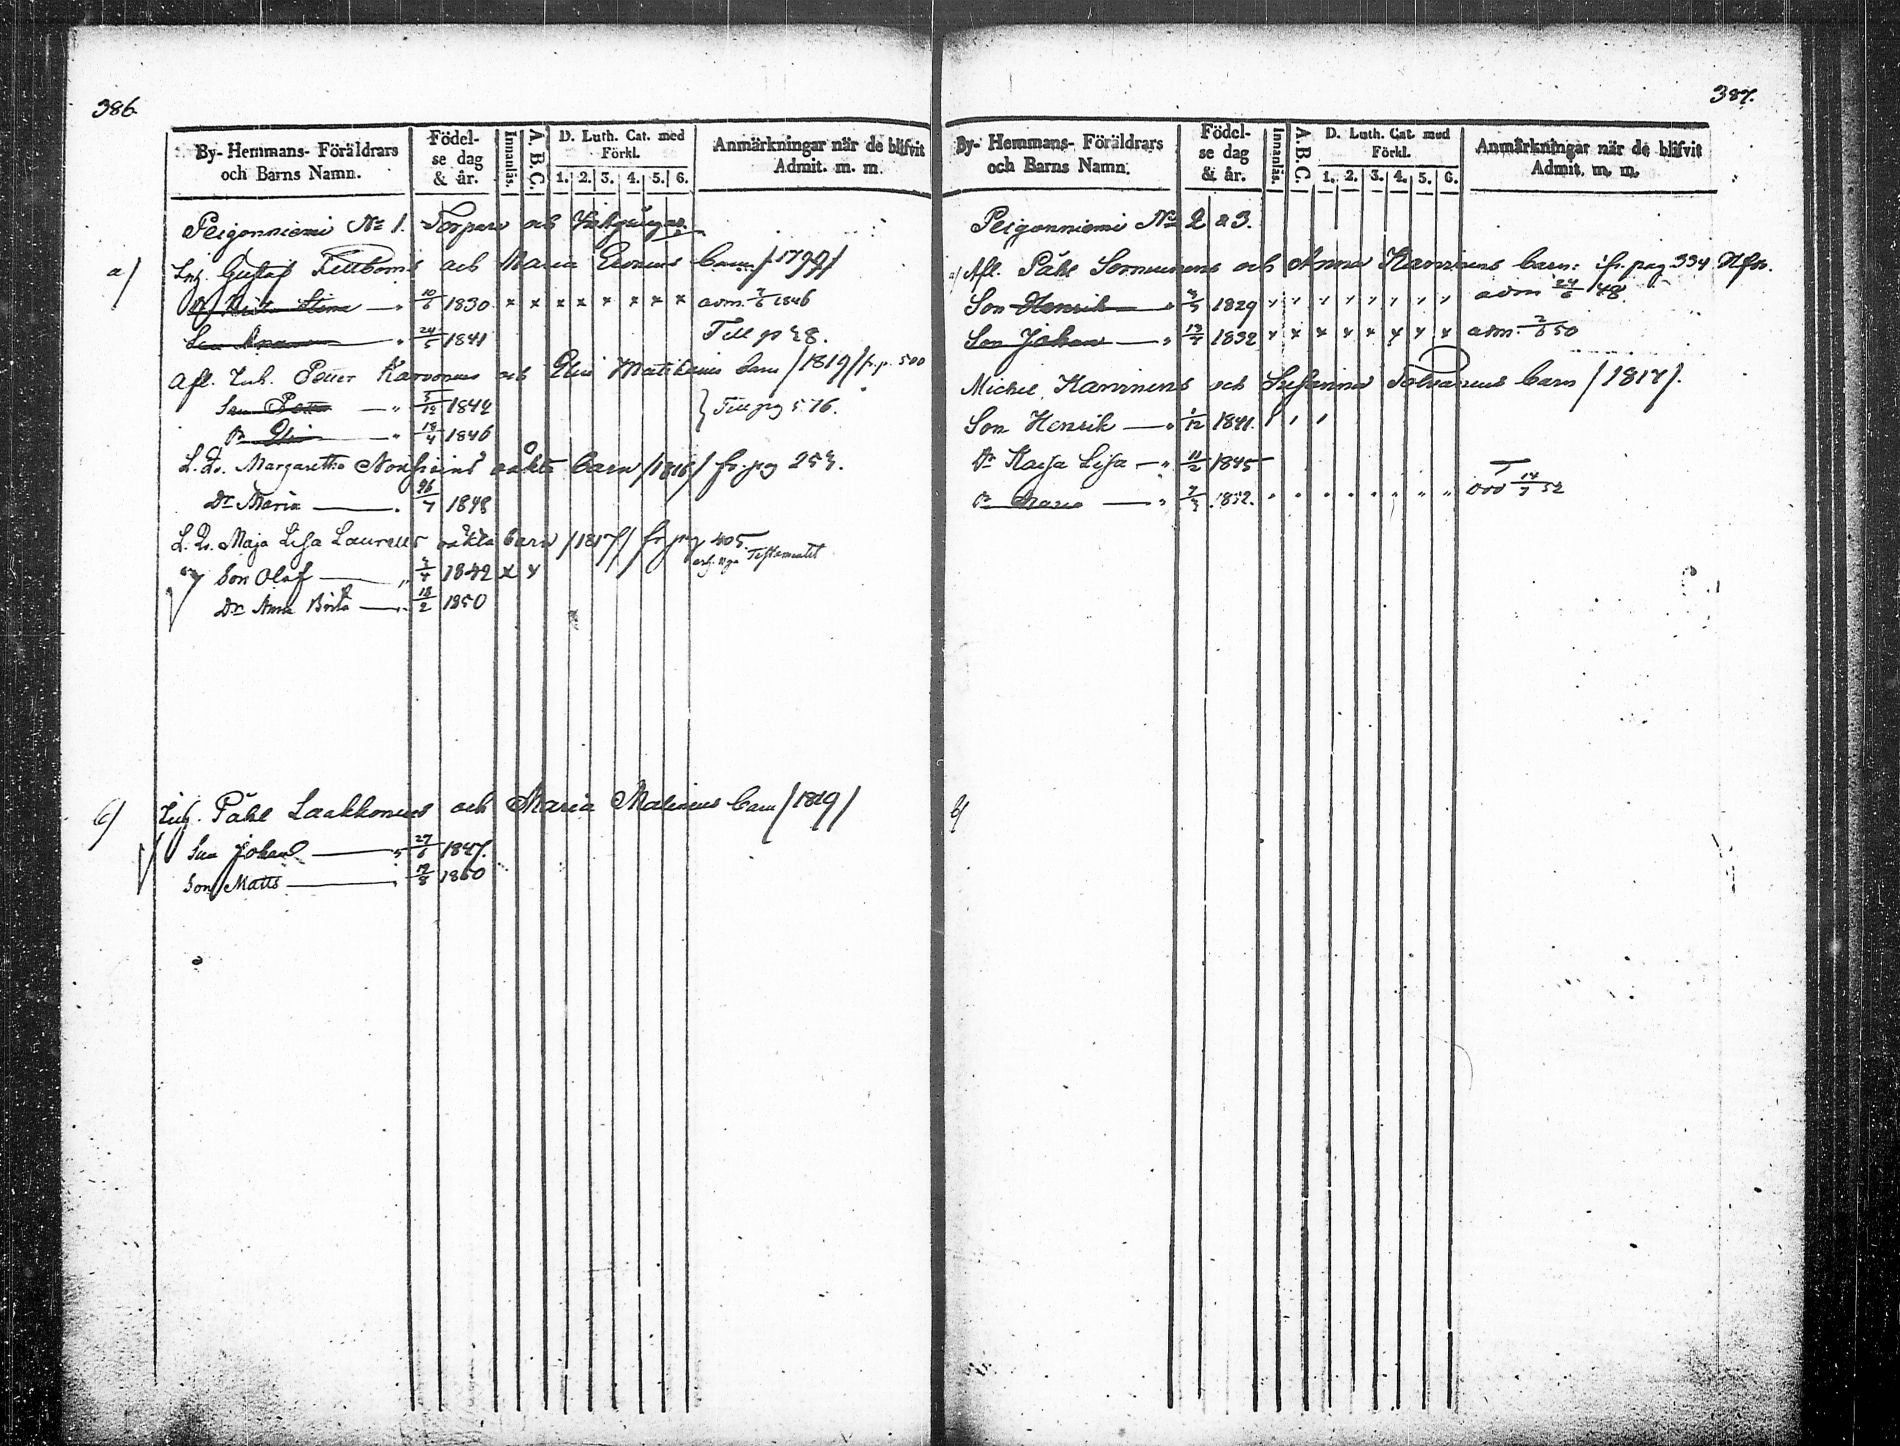 386.
By- Hemmans- Föräldrars och Barns Namn.
Födel-se dag & år.
Innanläs.
A. B. C.
D. Luth. Cat. med Förkl.
1. 2. 3. 4. 5. 6.
Anmärkningar när de blifvit Admit. m. m.
Peigonniemi No 1. Torpare och
a/ Inh. Gustaf och Maria barn /1799/
Stina " 10/6 1830 x x x x x x x x adm. 7/6 1846
" 24/5 1841 Till p 28.
Afl. Inh. Petter Karvonens och Elin barn /1819/ fr. p. 500
Son Petter — " 5/12 1842 } Till pg 576.
Dr Elin " 18/4 1846
L. Qv. Margaretha oäkta barn /1816/ fr. pg 253.
Dr Maria — " 26/7 1848
L. Qv. Maja Lisa oäkta barn /1817/ fr. pg 405
Son Olof — " 1842 x x Testamentet
Dr Anna Brita — " 18/2 1850
b/ Inh. Påhl Laakkonens och Maria Malinens barn /1819/
Son Johan — " 27/6 1847.
Son Matts — " 1850
387.
By- Hemmans- Föräldrars och Barns Namn.
Födel-se dag & år.
Innanläs.
A. B. C.
D. Luth. Cat. med Förkl.
1. 2. 3. 4. 5. 6.
Anmärkningar när de blifvit Admit. m. m.
Peigonniemi No 2 a 3.
a/ Afl. Påhl Sormunens och Anna Karvinens barn: fr. pag 334
Son Henrik — " 1829 adm 24/6 48.
Son Johan — " 1832 x x x x x x x adm. 50
Michel Karvinens och Susanna Tolvanens barn /1817/.
Son Henrik — " 1/12 1841.
Dr Kaisa Lisa — " 11/2 1845
Dr Maria — " 1852. död 14/7 52
b/